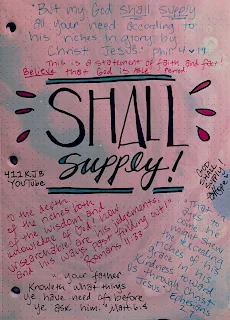 "But my God shall supply
all your need according to
his riches in glory by
Christ Jesus" phil 4 19
This is a statement of faith and fact!
Believe that God is able Period
SHALL
supply!
411KJB
YouTube
God
SHALL
supply!
Hope
"O the depth
of the riches both
of the wisdom and
knowledge of God! how
unsearchable are his judgements,
and his ways past finding out!"
Romans 11:33
"That in the
ages to come he
might shew
the exceeding
riches of his
grace in his
kindness toward
us through Christ
Jesus" Ephesians
2:7
"your father
knoweth what things
ye have need of, before
ye ask him." Matt 6:8